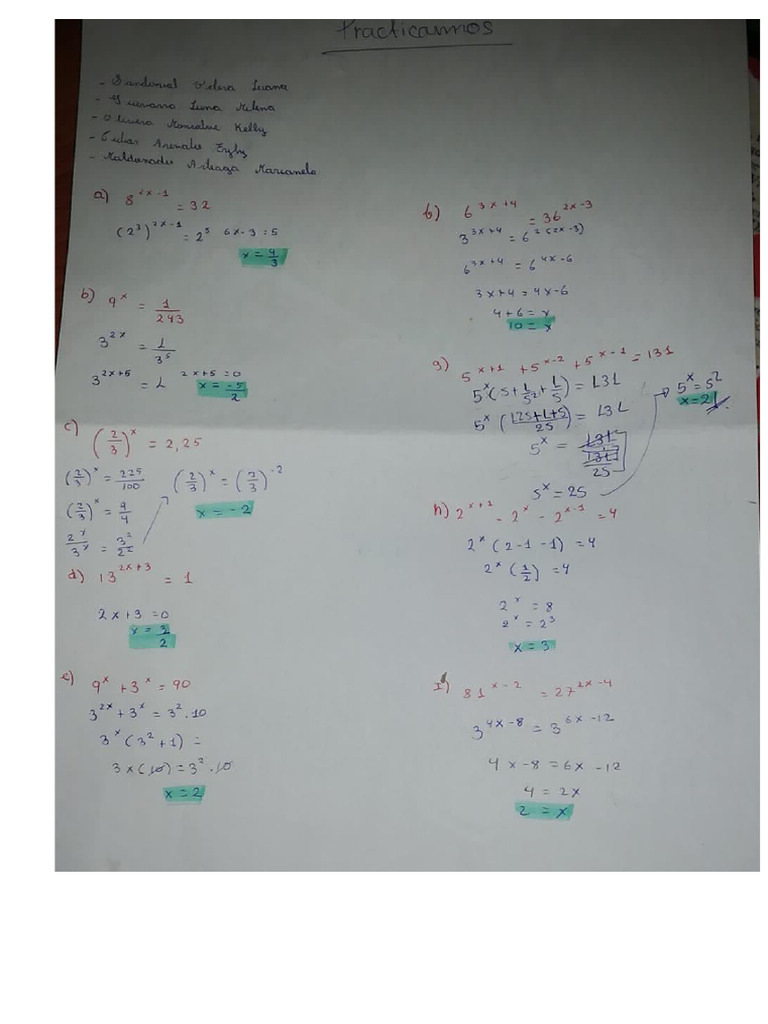 Practicamos
- Sandoval Valera Luana
- Guevarra Luna Milena
- Olivera Monsalve Kelly
- Arenales
- Maldonado Arteaga Marianela
a) 8^{2x-1} = 32
(2^3)^{2x-1} = 2^5 6x-3 = 5
x = 4/3
b) 9^x = 1/243
3^{2x} = 1/3^5
3^{2x+5} = 1 2x+5 = 0
x = -5/2
c) (2/3)^x = 2,25
(2/3)^x = 225/100
(2/3)^x = 9/4
2^x/3^x = 3^2/2^2
(2/3)^x = (2/3)^{-2}
x = -2
d) 13^{2x+3} = 1
2x+3 = 0
x = 3/2
e) 9^x + 3^x = 90
3^{2x} + 3^x = 3^2 . 10
3^x (3^2 + 1) =
3x (10) = 3^2 . 10
x = 2
6^{3x+4} = 36^{2x-3}
3^{3x+4} = 6^{2(2x-3)}
6^{3x+4} = 6^{4x-6}
3x+4 = 4x-6
4+6 = x
10 = x
g) 5^{x+1} + 5^{x-2} + 5^{x-1} = 131
5^x (5 + 1/5^2 + 1/5) = 131
5^x ((125+1+5)/25) = 131
5^x = 131/(131/25)
5^x = 25
5^x = 5^2
x = 2
h) 2^{x+1} - 2^x - 2^{x-1} = 4
2^x (2-1-1) = 4
2^x (1/2) = 4
2^x = 8
2^x = 2^3
x = 3
I) 81^{x-2} = 27^{2x-4}
3^{4x-8} = 3^{6x-12}
4x-8 = 6x-12
4 = 2x
2 = x